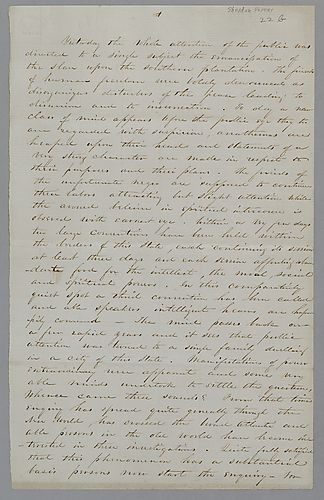 Shaker Papers
22 G
1
Yesterday the whole attention of the public was
directed to a single subject the emancipation of
the slave upon the southern plantation. The friends
of human freedom were widely denounced as
disorganizers disturbers of the peace leading to
disunion and to insurrection. To day a new
class of mind appears upon the public eye they to
are regarded with suspicion, anathemas are
heaped upon their heads and statements of a
very strong character are made in respect to
their purposes and their plans. The friends of
the unfortunate negro are supposed to continue
their labors attracting but slight attention while
the avowed believer in spiritual intercourse is
observed with earnest eye. Within a very few days
two large conventions have been held within
the borders of this State, each continuing its session
at least three days and each session affording abun-
dant food for the intellect, the moral social
and spiritual powers. In this comparatively
quiet spot a third convention has been called
and able speakers intelligent hearers are
convened. The mind passes back on
a few rapid years and it sees that public
attention was turned to a single family dwelling
in a city of this State. Manifestations of
contrary were apparent and some
able minds undertook to settle the questions,
Whence came these sounds? From that time
inquiry has spread quite generally through the
New World has crossed the broad atlantic and
able persons in the old world have become in-
terested in these investigations. Quite well satisfied
that this phenomenon has a substantial
basis persons now start the inquiry